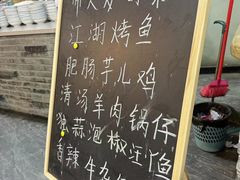 江湖烤鱼
肥肠芋儿鸡
清汤羊肉锅仔
独蒜泡椒江鱼
香辣牛